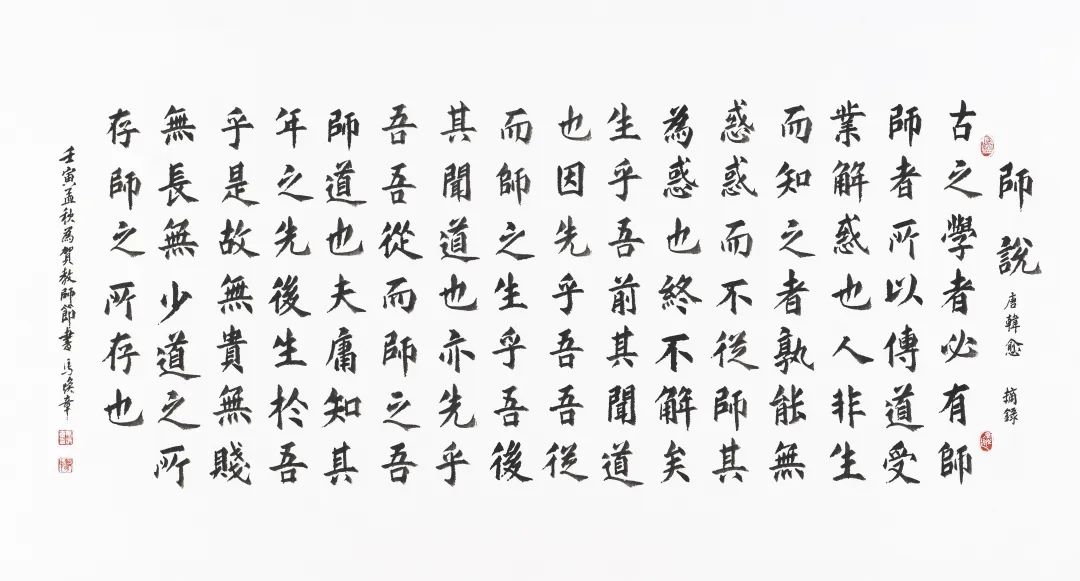 師說 唐韓愈 摘錄
古之學者必有師
師者所以傳道受
業解惑也人非生
而知之者孰能無
惑惑而不從師其
為惑也終不解矣
生乎吾前其聞道
也因先乎吾吾從
而師之生乎吾後
其聞道也亦先乎
吾吾從而師之吾
師道也夫庸知其
年之先後生於吾
乎是故無貴無賤
無長無少道之所
存師之所存也
壬寅孟秋為賀教師節書